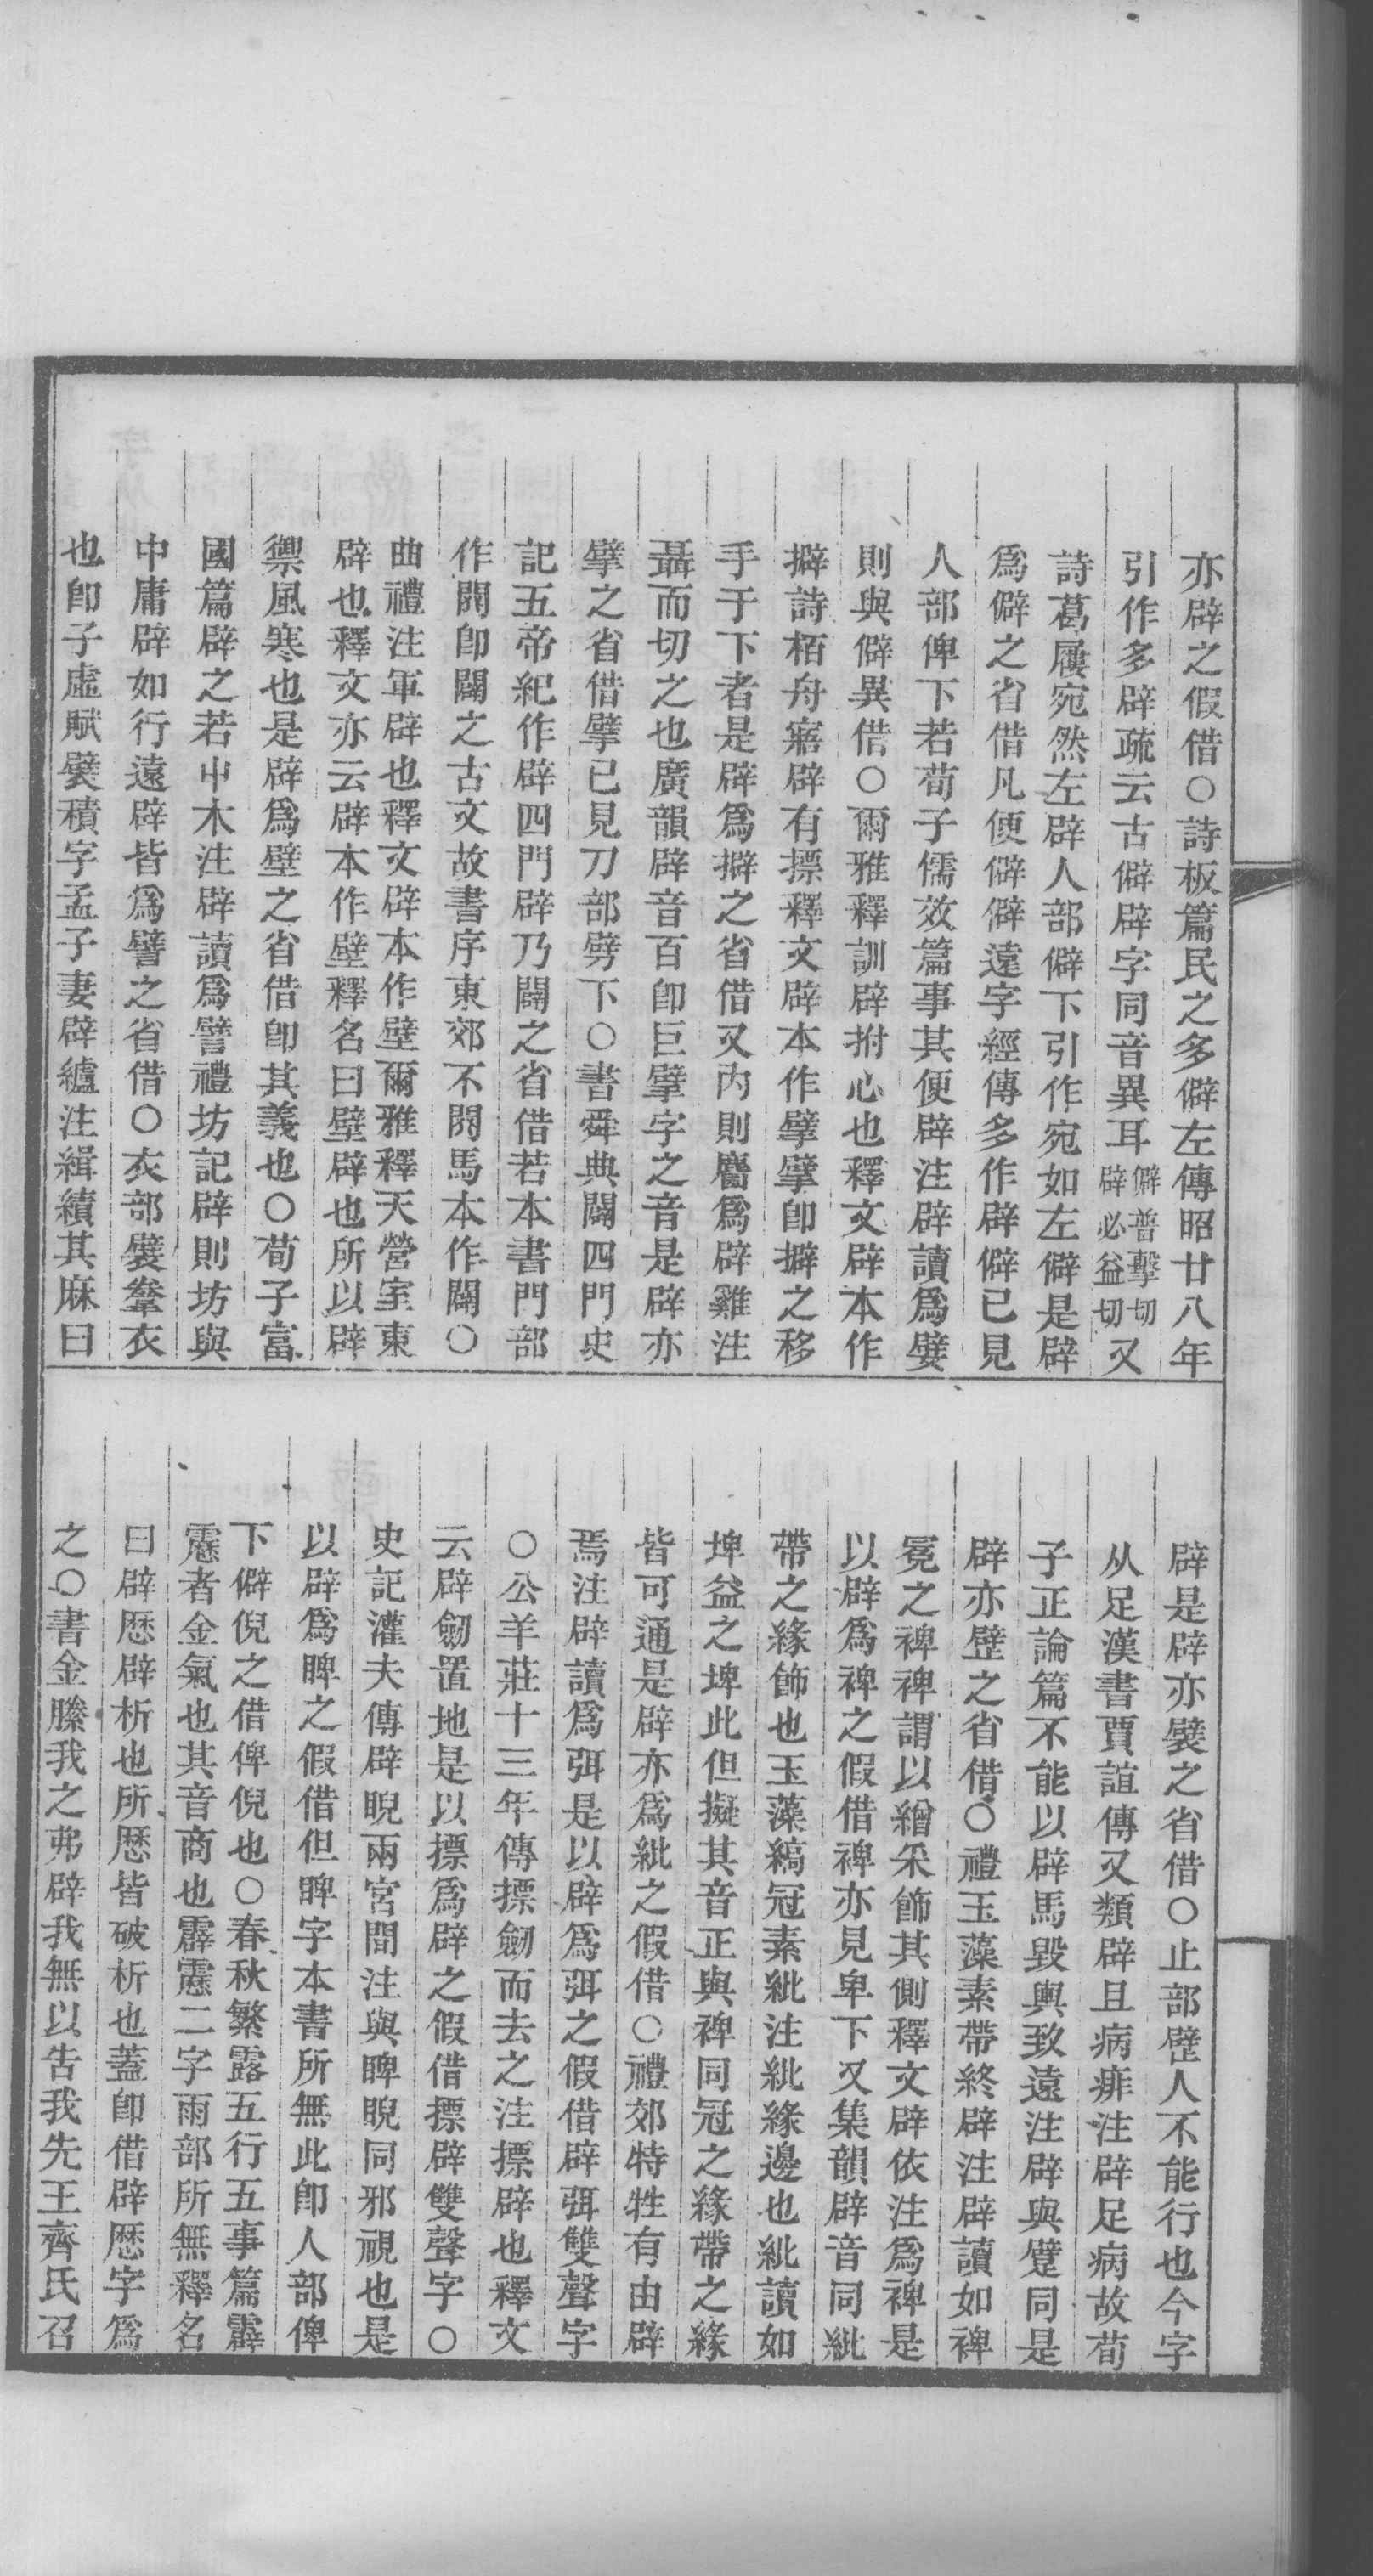 亦辟之假借○詩板篇民之多僻左傳昭廿八年
引作多辟疏云古僻辟字同音異耳僻普擊切辟必益切又
詩葛屨宛然左辟人部僻下引作宛如左僻是辟
爲僻之省借凡便僻僻遠字經傳多作辟僻已見
人部俾下若荀子儒效篇事其便辟注辟讀爲嬖
則與僻異借○爾雅釋訓辟拊心也釋文辟本作
擗詩栢舟寤辟有摽釋文辟本作擘擘卽擗之移
手于下者是辟爲擗之省借又內則麕爲辟雞注
聶而切之也廣韻辟音百卽巨擘字之音是辟亦
擘之省借擘已見刀部劈下○書舜典闢四門史
記五帝紀作辟四門辟乃闢之省借若本書門部
作𨳿卽闢之古文故書序東郊不𨳿馬本作闢○
曲禮注軍辟也釋文辟本作壁爾雅釋天營室東
辟也釋文亦云辟本作壁釋名曰壁辟也所以辟
禦風寒也是辟爲壁之省借卽其義也○荀子富
國篇辟之若屮木注辟讀爲譬禮坊記辟則坊與
中庸辟如行遠辟皆爲譬之省借○衣部襞韏衣
也卽子虛賦襞積字孟子妻辟纑注緝績其麻曰
辟是辟亦襞之省借○止部壁人不能行也今字
从足漢書賈誼傳又類辟且病痱注辟足病故荀
子正論篇不能以辟馬毀輿致遠注辟與躄同是
辟亦壁之省借○禮玉藻素帶終辟注辟讀如裨
冕之裨裨謂以繒采飾其側釋文辟依注爲裨是
以辟爲裨之假借裨亦見卑下又集韻辟音同紕
帶之緣飾也玉藻縞冠素紕注紕緣邊也紕讀如
埤益之埤此但擬其音正與裨同冠之緣帶之緣
皆可通是辟亦爲紕之假借○禮郊特牲有由辟
焉注辟讀爲弭是以辟爲弭之假借辟弭雙聲字
○公羊莊十三年傳摽劒而去之注摽辟也釋文
云辟劒置地是以摽爲辟之假借摽辟雙聲字○
史記灌夫傳辟睨兩宮閒注與睥睨同邪視也是
以辟爲睥之假借但睥字本書所無此卽人部俾
下僻倪之借俾倪也○春秋繁露五行五事篇霹
靂者金氣也其音商也霹靂二字雨部所無釋名
曰辟歷辟析也所歷皆破析也蓋卽借辟歷字爲
之○書金縢我之弗辟我無以告我先王齊氏召